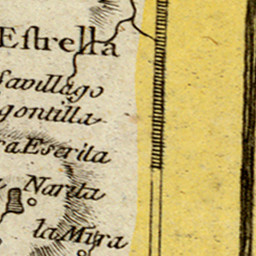 Estrella
Savillago
gontilla
ra Eserita
Narita
la Mura